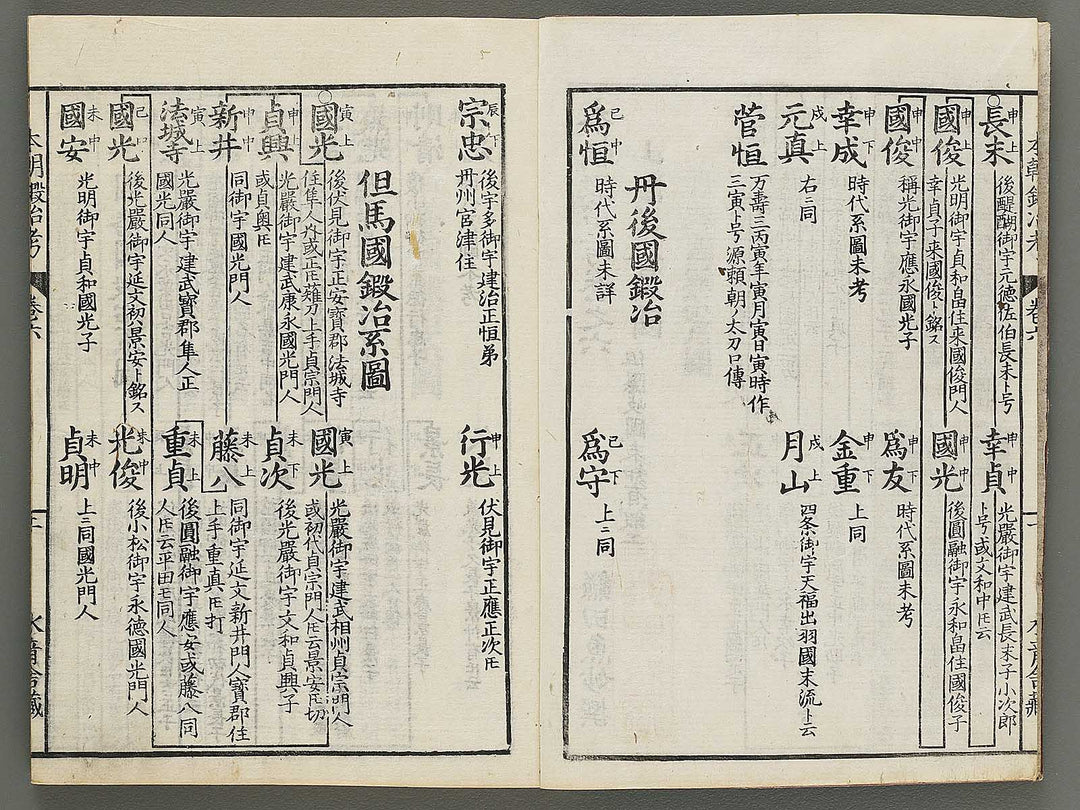 本朝鍛冶考 巻六
長末 申上 後醍醐御宇元徳佐伯長末ト号
幸貞 申中 光嚴御宇建武長末子小次郎
ト号或文和中ヒ云
國俊 申上 光明御宇貞和畠住来國俊門人
幸貞子来國俊ト銘ス
國光 申中 後圓融御宇永和畠住國俊子
國俊 申中 稱光御宇應永國光子
爲友 申下 時代系圖未考
幸成 申下 時代系圖未考
金重 申下 上同
元真 戌上 右ニ同
月山 戌上 四条御宇天福出羽國末流ト云
菅恒 万壽三丙寅年寅月寅日寅時作
三寅ト号源頼朝ノ太刀ロ傳
丹後國鍛冶
爲恒 已中 時代系圖未詳
爲守 已下 上ニ同
宗忠 辰下 後宇多御宇建治正恒弟
丹州宮津住
行光 申上 伏見御宇正應正次ヒ
但馬國鍛冶系圖
國光 寅上 後伏見御宇正安寳郡法城寺
住隼人允或正ヒ薙刀上手貞宗門人
國光 寅上 光嚴御宇建武相州貞宗門人
或初代貞宗門人ヒ云景安ヒ切
貞興 申上 光嚴御宇建武康永國光門人
或貞奥ヒ
貞次 未下 後光嚴御宇文和貞興子
新井 申中 同御宇國光門人
藤八 未上 同御宇延文新井門人寳郡住
上手重真ヒ打
法城寺 寅上 光嚴御宇建武寳郡隼人正
國光同人
重貞 未上 後圓融御宇應安或藤八同
人ヒ云平田モ同人
國光 已中 後光嚴御宇延文初ハ景安ト銘ス
光俊 未中 後小松御宇永德國光門人
國安 未中 光明御宇貞和國光子
貞明 未中 上ニ同國光門人
本朝鍛冶考 巻六